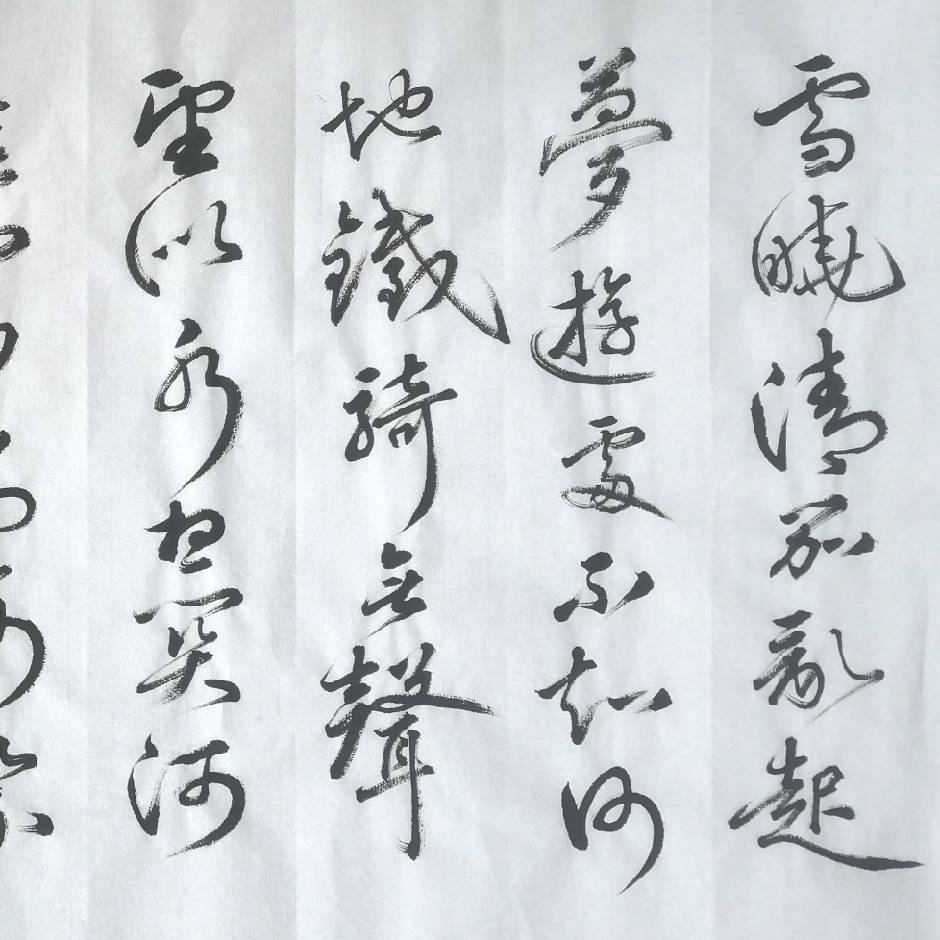 雪曉清笳亂起
夢遊處不知何
地鐵騎無聲
望似水想關河